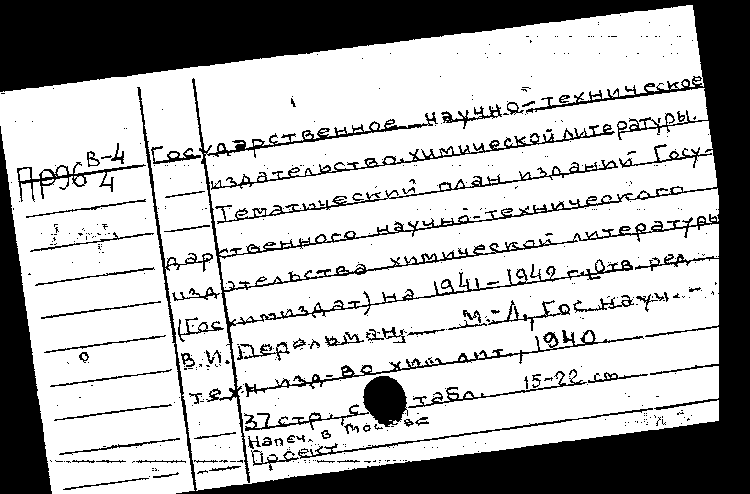 Пр96 В-4/4
Государственное научно-техническое
издательство химической литературы.
Тематический план изданий Госу-
дарственного научно-технического
издательства химической литературы
(Госхимиздат) на 1941-1942 г. Отв. ред.
В.И. Перельман. М.-Л., Гос. науч.-
техн. изд-во хим. лит., 1940.
37 стр. с табл. 15-22 см.
Напеч. в Москве
Проект